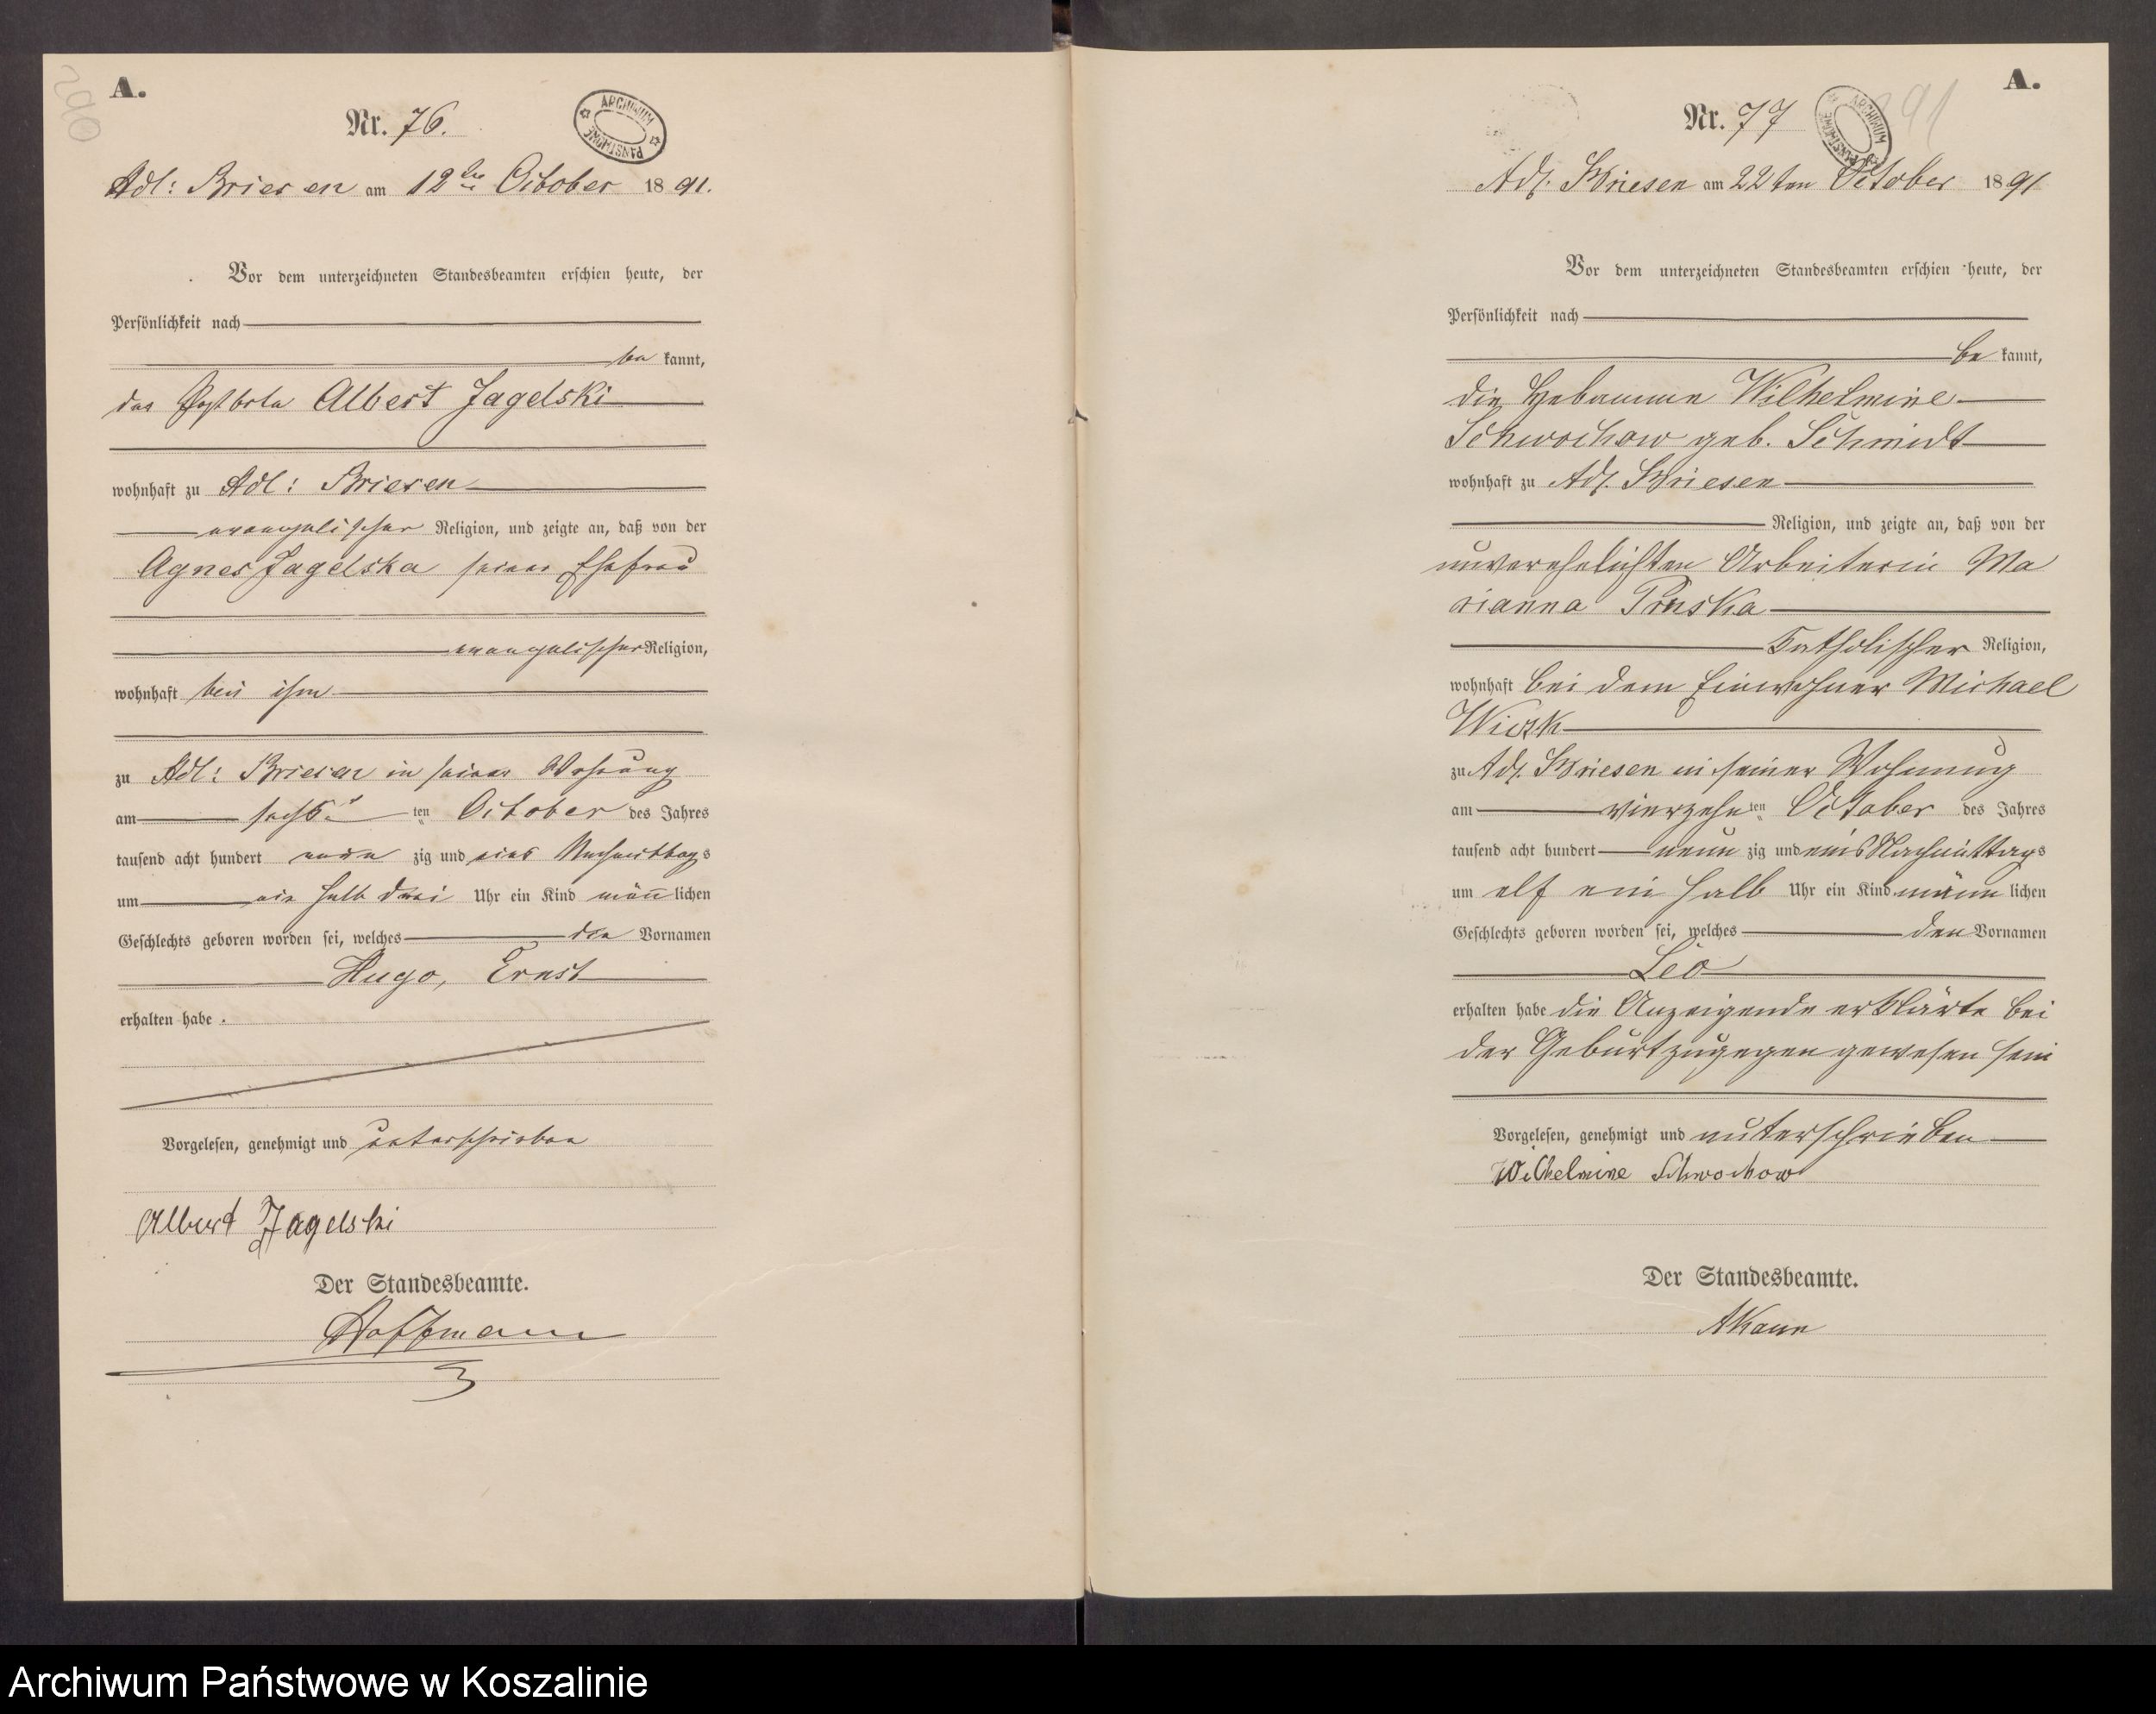 A.
Nr. 76.
ARCHIWUM PAŃSTWOWE
Adl: Briesen am 12ten October 1891.
Vor dem unterzeichneten Standesbeamten erschien heute, der
Persönlichkeit nach
be kannt,
der Postbote Albert Jagelski
wohnhaft zu Adl: Briesen
evangelischer Religion, und zeigte an, daß von der
Agnes Jagelska seiner Ehefrau
evangelischer Religion,
wohnhaft bei ihm
zu Adl: Briesen in seiner Wohnung
am sechsten October des Jahres
tausend acht hundert neun zig und eins Nachmittags
um ein halb drei Uhr ein Kind männlichen
Geschlechts geboren worden sei, welches die Vornamen
Hugo, Ernst
erhalten habe.
Vorgelesen, genehmigt und unterschrieben
Albert Jagelski
Der Standesbeamte.
Hoffmann
A.
Nr. 77
91
ARCHIWUM PAŃSTWOWE
Adl. Briesen am 22ten October 1891
Vor dem unterzeichneten Standesbeamten erschien heute, der
Persönlichkeit nach
be kannt,
die Hebamme Wilhelmine
Schwochow geb. Schmidt
wohnhaft zu Adl. Briesen
Religion, und zeigte an, daß von der
unverehelichten Arbeiterin Ma
rianna Pruska
Katholischer Religion,
wohnhaft bei dem Einwohner Michael
zu Adl. Briesen in seiner Wohnung
am vierzehnten October des Jahres
tausend acht hundert neun zig und eins Nachmittags
um elf ein halb Uhr ein Kind männ lichen
Geschlechts geboren worden sei, welches den Vornamen
Leo
erhalten habe die Anzeigende erklärte bei
der Geburt zugegen gewesen sein
Vorgelesen, genehmigt und unterschrieben
Wilhelmine Schwochow
Der Standesbeamte.
Archiwum Państwowe w Koszalinie